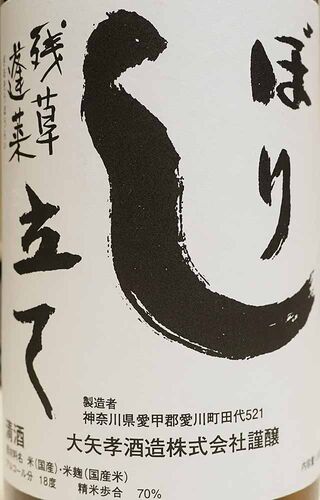 しぼり
立て
残草
蓬莱
製造者
神奈川県愛甲郡愛川町田代521
大矢孝酒造株式会社謹醸
清酒
原材料名 米(国産)・米麹(国産米)
アルコール分 18度
精米歩合 70%